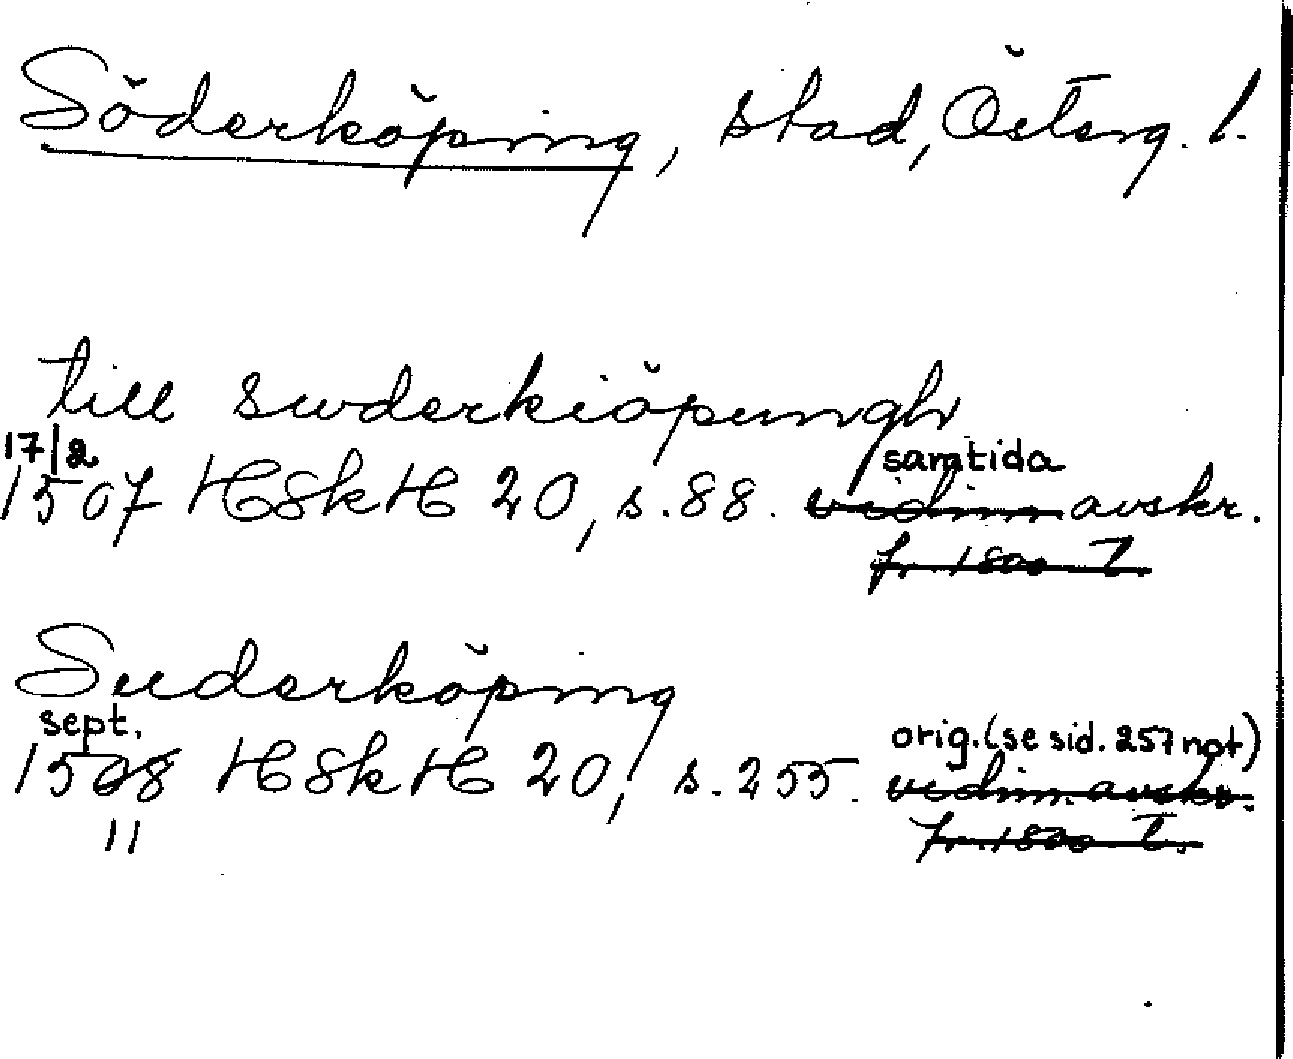 Söderköping, stad, Österg. l.
till suderkiöpungh
17/2 samtida
1507 HSkH 20, s. 88. vidim avskr.
fr. 1800 t.
Suderköping
sept. orig. (se sid. 257 not)
1508 HSkH 20, s. 255. vidim. avskr.
fr. 1800 t.
11